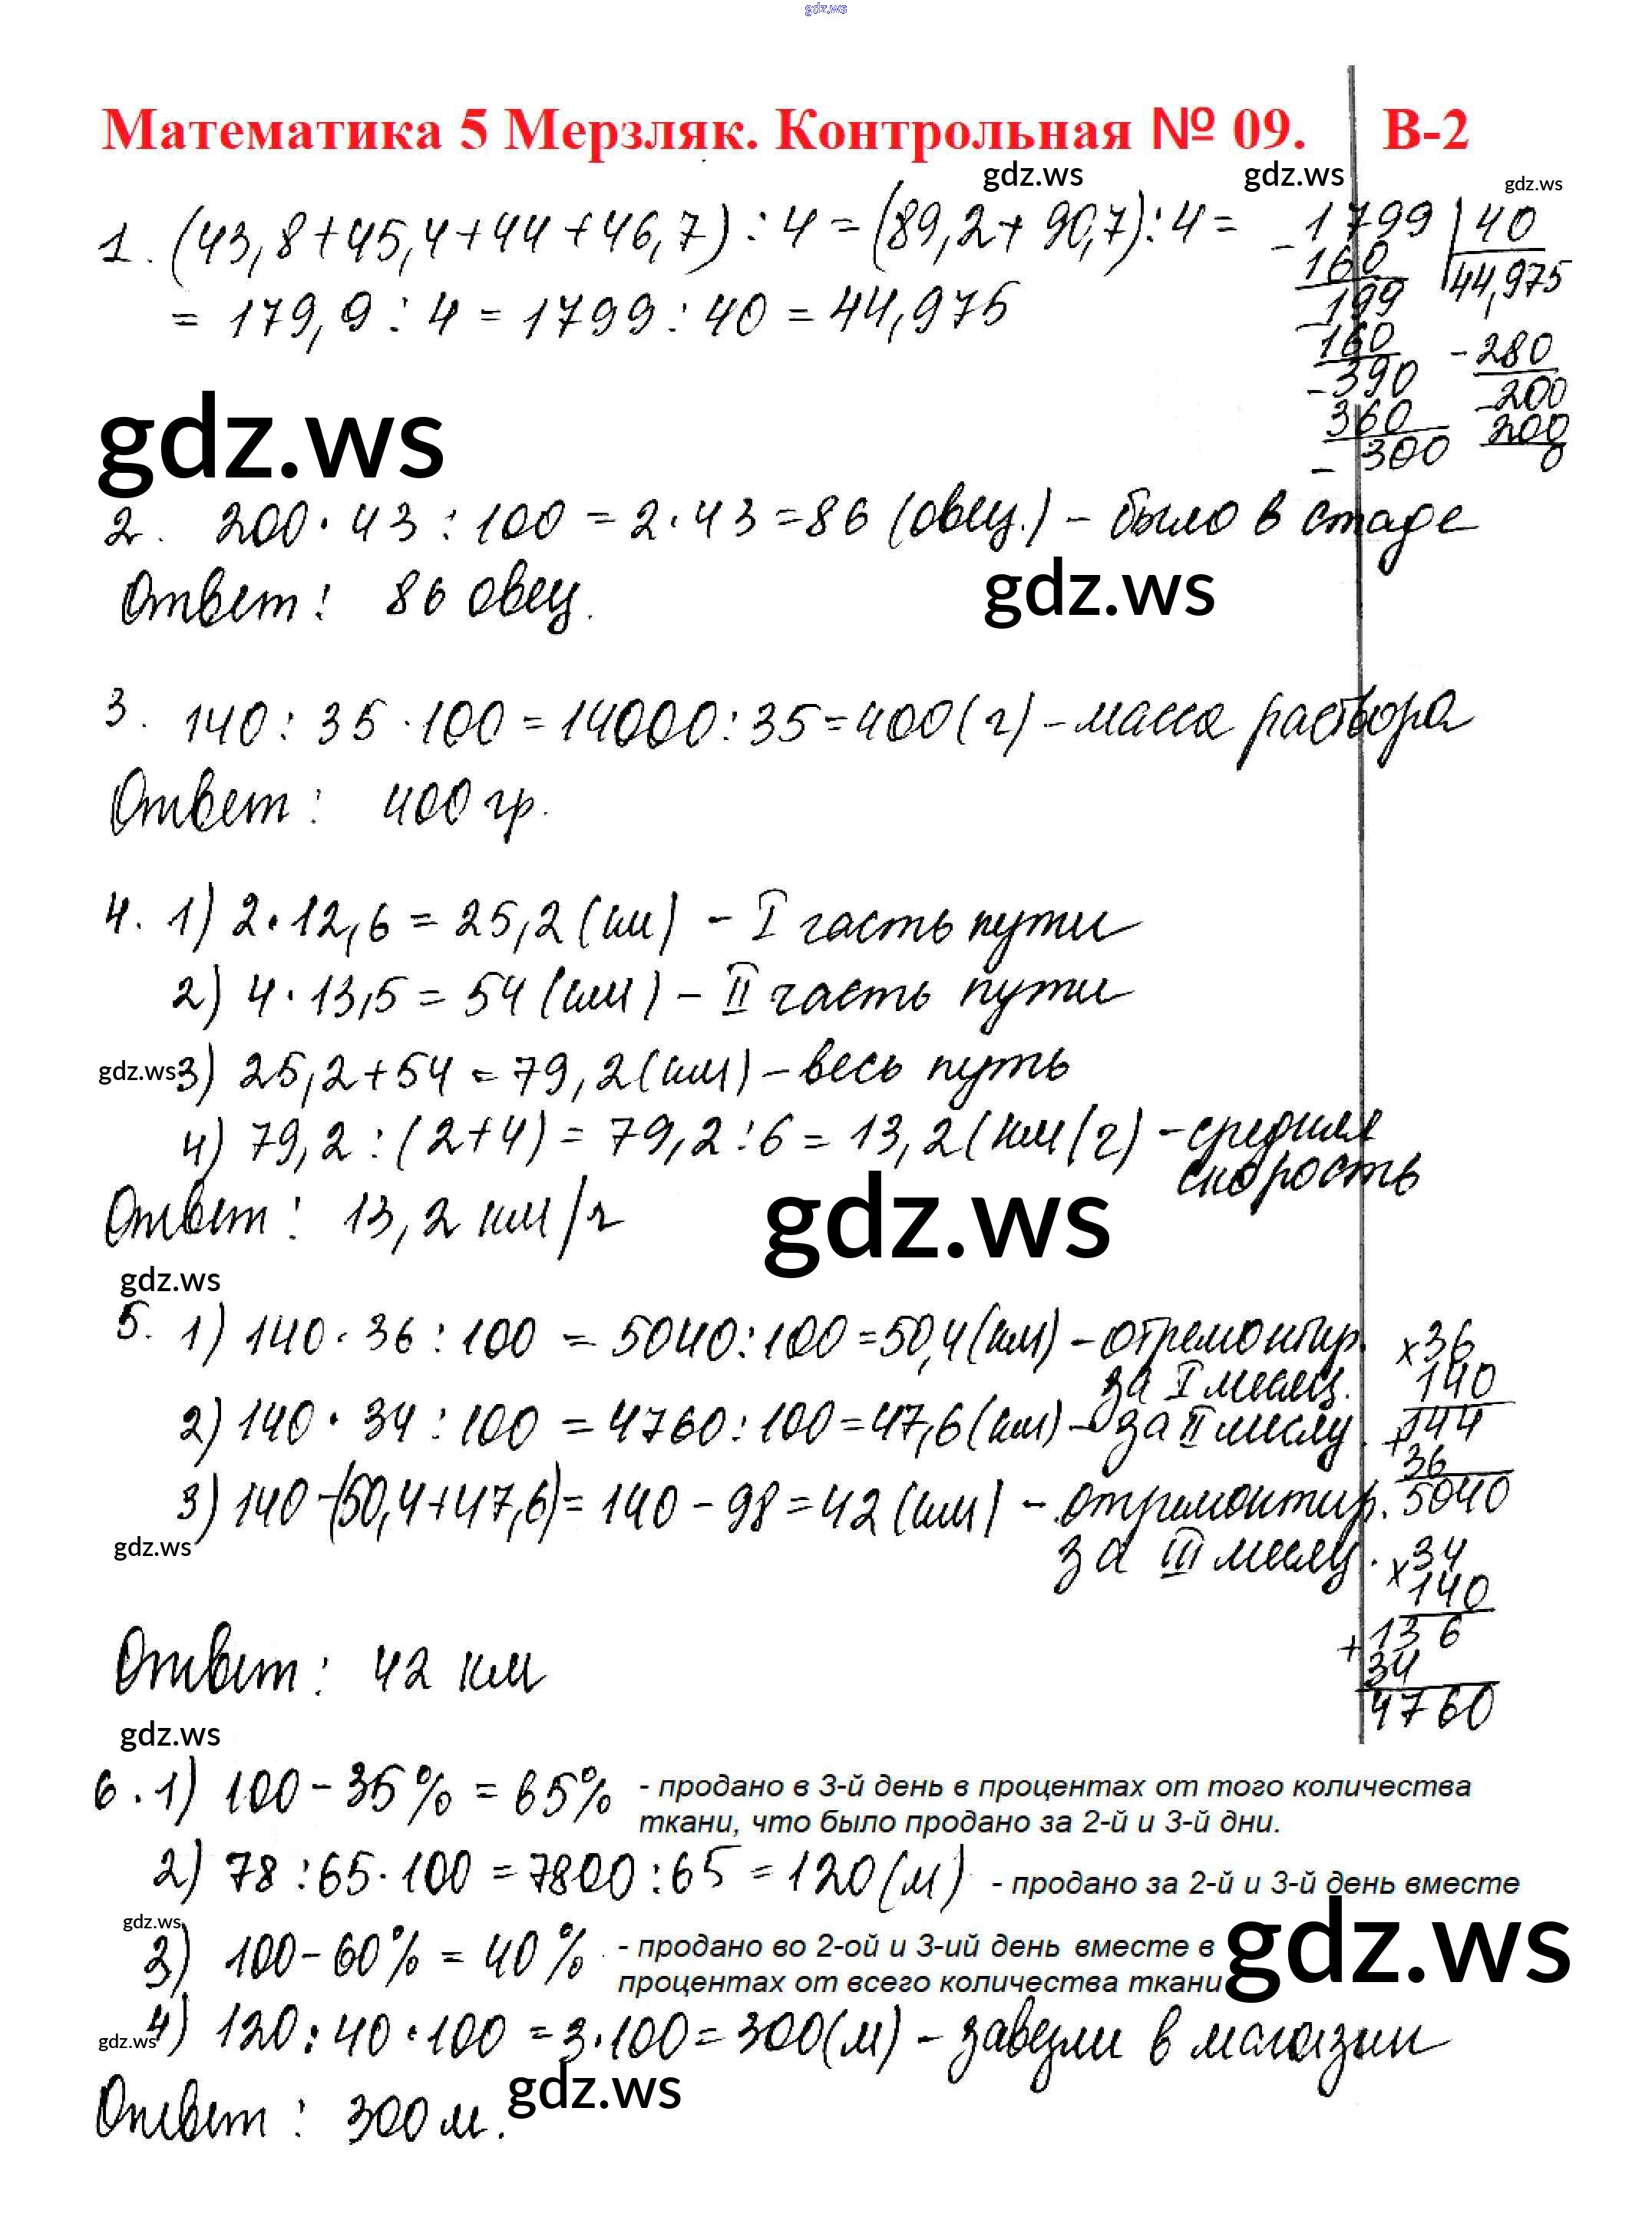 gdz.ws
Математика 5 Мерзляк. Контрольная № 09. В-2
gdz.ws gdz.ws gdz.ws
1. (43,8+45,4+44+46,7):4=(89,2+90,7):4=
= 179,9:4=1799:40=44,975
1799 | 40
- 160 44,975
199
- 160
- 390
360
- 300
- 280
- 200
200
0
gdz.ws
2. 200·43:100=2·43=86 (овец.) - было в стаде
Ответ: 86 овец.
gdz.ws
3. 140:35·100=14000:35=400(г) - масса раствора
Ответ: 400 гр.
4. 1) 2·12,6=25,2(км) - I часть пути
2) 4·13,5=54(км) - II часть пути
gdz.ws 3) 25,2+54=79,2(км) - весь путь
4) 79,2:(2+4)=79,2:6=13,2(км/ч) - средняя
скорость
Ответ: 13,2 км/ч
gdz.ws
gdz.ws
5. 1) 140·36:100=5040:100=50,4(км) - отремонтир.
за I месяц.
2) 140·34:100=4760:100=47,6(км) - за II месяц.
3) 140-(50,4+47,6)=140-98=42(км) - отремонтир.
за III месяц.
gdz.ws
x36
140
+144
36
5040
x34
140
+136
34
4760
Ответ: 42 км
gdz.ws
6. 1) 100-35%=65% - продано в 3-й день в процентах от того количества
ткани, что было продано за 2-й и 3-й дни.
2) 78:65·100=7800:65=120(м) - продано за 2-й и 3-й день вместе
gdz.ws
3) 100-60%=40% - продано во 2-ой и 3-ий день вместе в
процентах от всего количества ткани
gdz.ws
gdz.ws 4) 120:40·100=3·100=300(м) - завезли в магазин
gdz.ws
Ответ: 300 м.